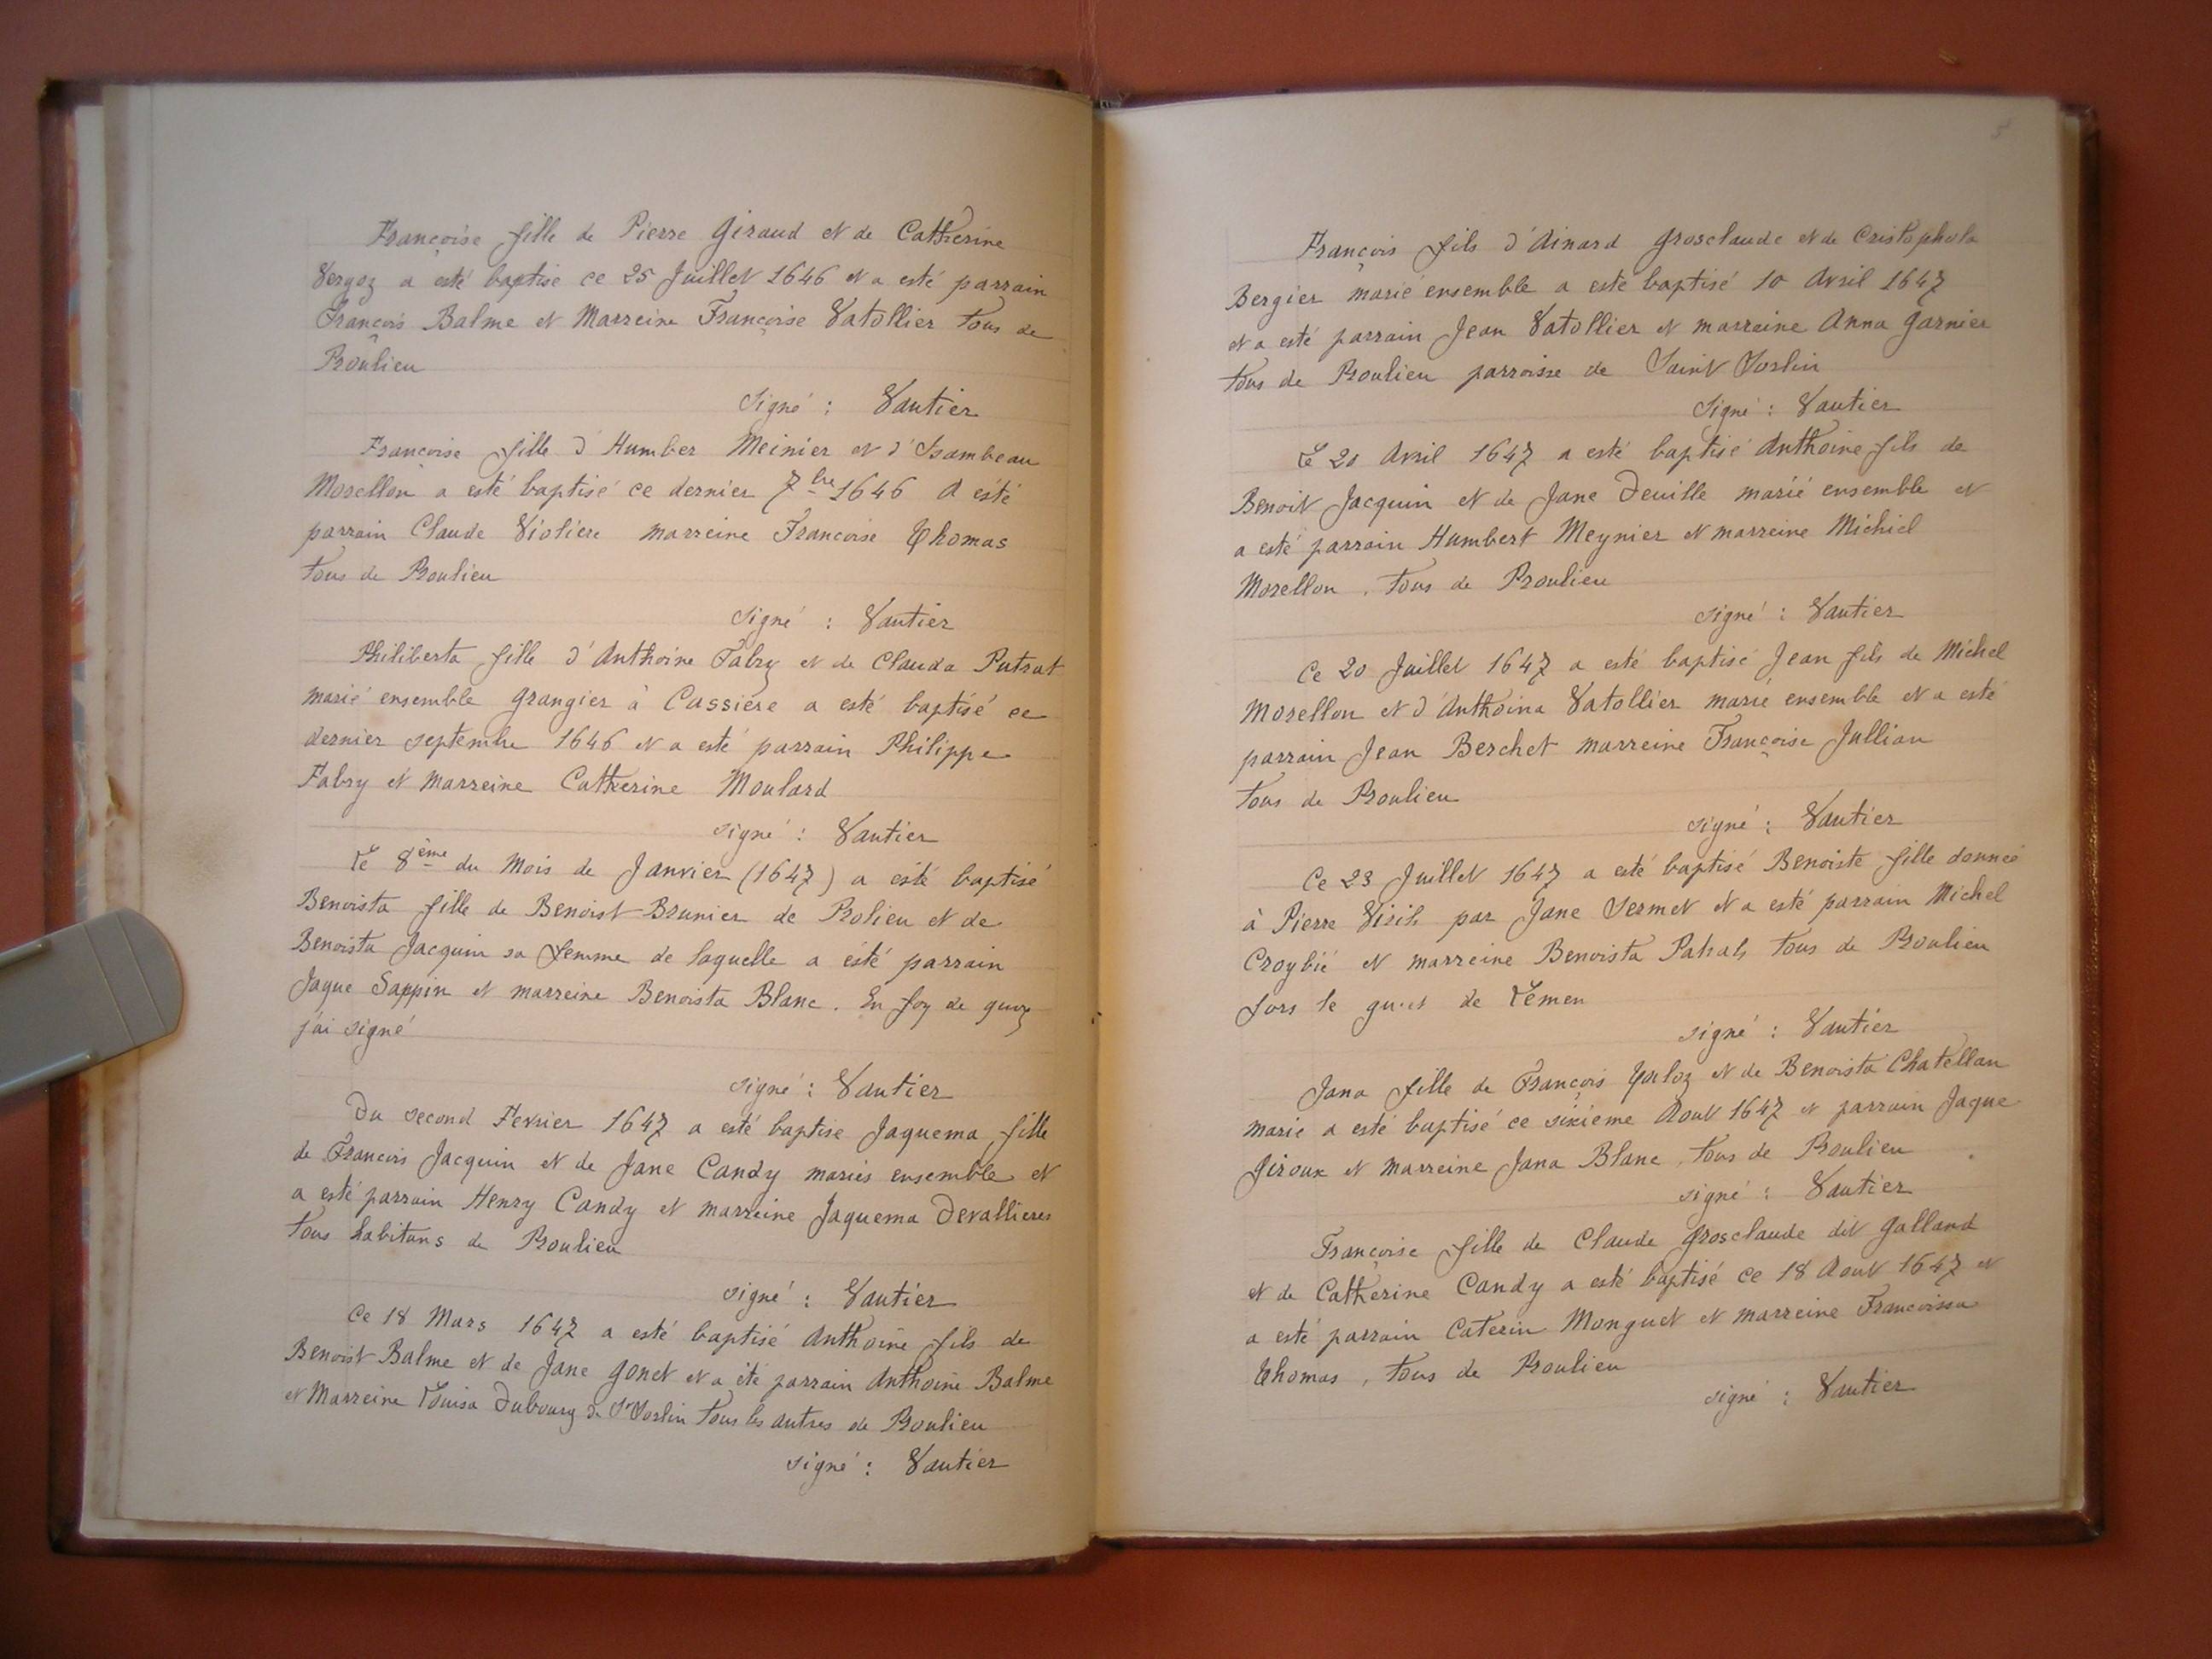 Françoise fille de Pierre Giraud et de Catherine
Vergoz a esté baptisé ce 25 Juillet 1646 et a esté parrain
François Balme et Marreine Françoise Vatollier tous de
Proulieu
Signé : Vautier
Françoise fille d'Humber Meinier et d'Isambeau
Morellon a esté baptisé ce dernier 7bre 1646 a esté
parrain Claude Violiere marreine Francoise Thomas
tous de Proulieu
Signé : Vautier
Philiberta fille d'Anthoine Fabry et de Clauda Putrat
marié ensemble grangier à Cassière a esté baptisé ce
dernier septembre 1646 et a esté parrain Philippe
Fabry et marreine Catherine Moulard
signé : Vautier
Le 8ème du Mois de Janvier (1647) a esté baptisé
Benoista fille de Benoist Brunier de Prolieu et de
Benoista Jacquin sa femme de laquelle a esté parrain
Jaque Sappin et marreine Benoista Blanc. En foy de quoy
j'ai signé
signé : Vautier
Du second Fevrier 1647 a esté baptise Jaquema fille
de Francois Jacquin et de Jane Candy mariés ensemble et
a esté parrain Henry Candy et marreine Jaquema Devallieres
tous habitans de Proulieu
signé : Vautier
Ce 18 Mars 1647 a esté baptisé Anthoine fils de
Benoist Balme et de Jane Gonet et a été parrain Anthoine Balme
et Marreine Louisa Dubourg de St Sorlin tous les autres de Proulieu
signé : Vautier
5
François fils d'Ainard Grosclaude et de Cristophola
Bergier marié ensemble a esté baptisé 10 Avril 1647
et a esté parrain Jean Vatollier et marraine Anna Garnier
tous de Proulieu parroisse de Saint Sorlin
Signé : Vautier
Le 20 Avril 1647 a esté baptisé Anthoine fils de
Benoit Jacquin et de Jane Deville marié ensemble et
a esté parrain Humbert Meynier et marreine Michiel
Morellon, tous de Proulieu
signé : Vautier
Ce 20 Juillet 1647 a esté baptisé Jean fils de Michel
Morellon et d'Anthoina Vatollier marié ensemble et a esté
parrain Jean Berchet marreine Françoise Jullian
tous de Proulieu
signé : Vautier
Ce 23 Juillet 1647 a esté baptisé Benoiste fille donnée
à Pierre par Jane Sermet et a esté parrain Michel
Croybié et marreine Benoista tous de Proulieu
fors le de Lemen
signé : Vautier
Jana fille de François et de Benoista Chatellan
marié a esté baptisé ce sixième Aout 1647 et parrain Jaque
Giroux et marreine Jana Blanc, tous de Proulieu
signé : Vautier
Françoise fille de Claude Grosclaude dit Galland
et de Catherine Candy a esté baptisé ce 18 Aout 1647 et
a esté parrain Caterin Monguet et marreine Francoissa
Thomas, tous de Proulieu
signé : Vautier